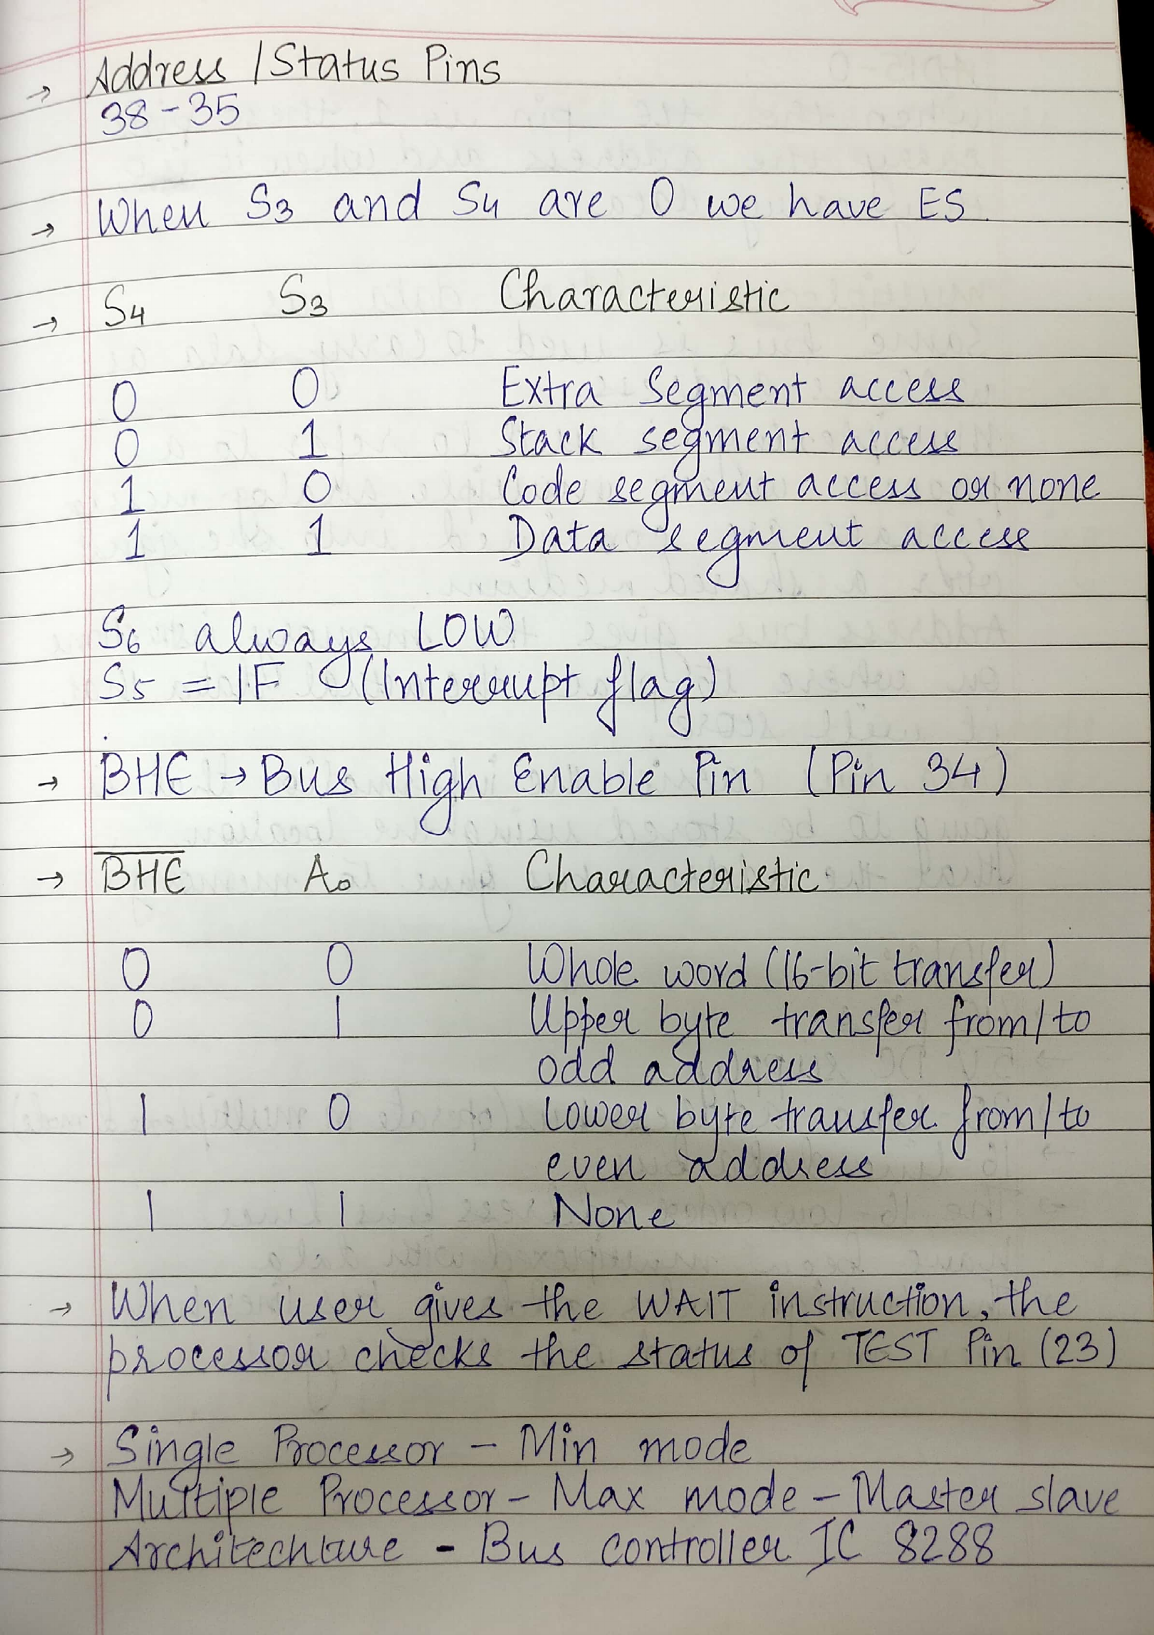 → Address / Status Pins
38 - 35
→ When S3 and S4 are 0 we have ES
→ S4 S3 Characteristic
0 0 Extra Segment access
0 1 Stack segment access
1 0 Code segment access or none
1 1 Data segment access
S6 always LOW
S5 = IF (Interrupt flag)
→ BHE → Bus High Enable Pin (Pin 34)
→ B̅H̅E̅ A0 Characteristic
0 0 Whole word (16-bit transfer)
0 1 Upper byte transfer from/to
odd address
1 0 Lower byte transfer from/to
even address
1 1 None
→ When user gives the WAIT instruction, the
processor checks the status of TEST Pin (23)
→ Single Processor - Min mode
Multiple Processor - Max mode - Master slave
Architechture - Bus controller IC 8288